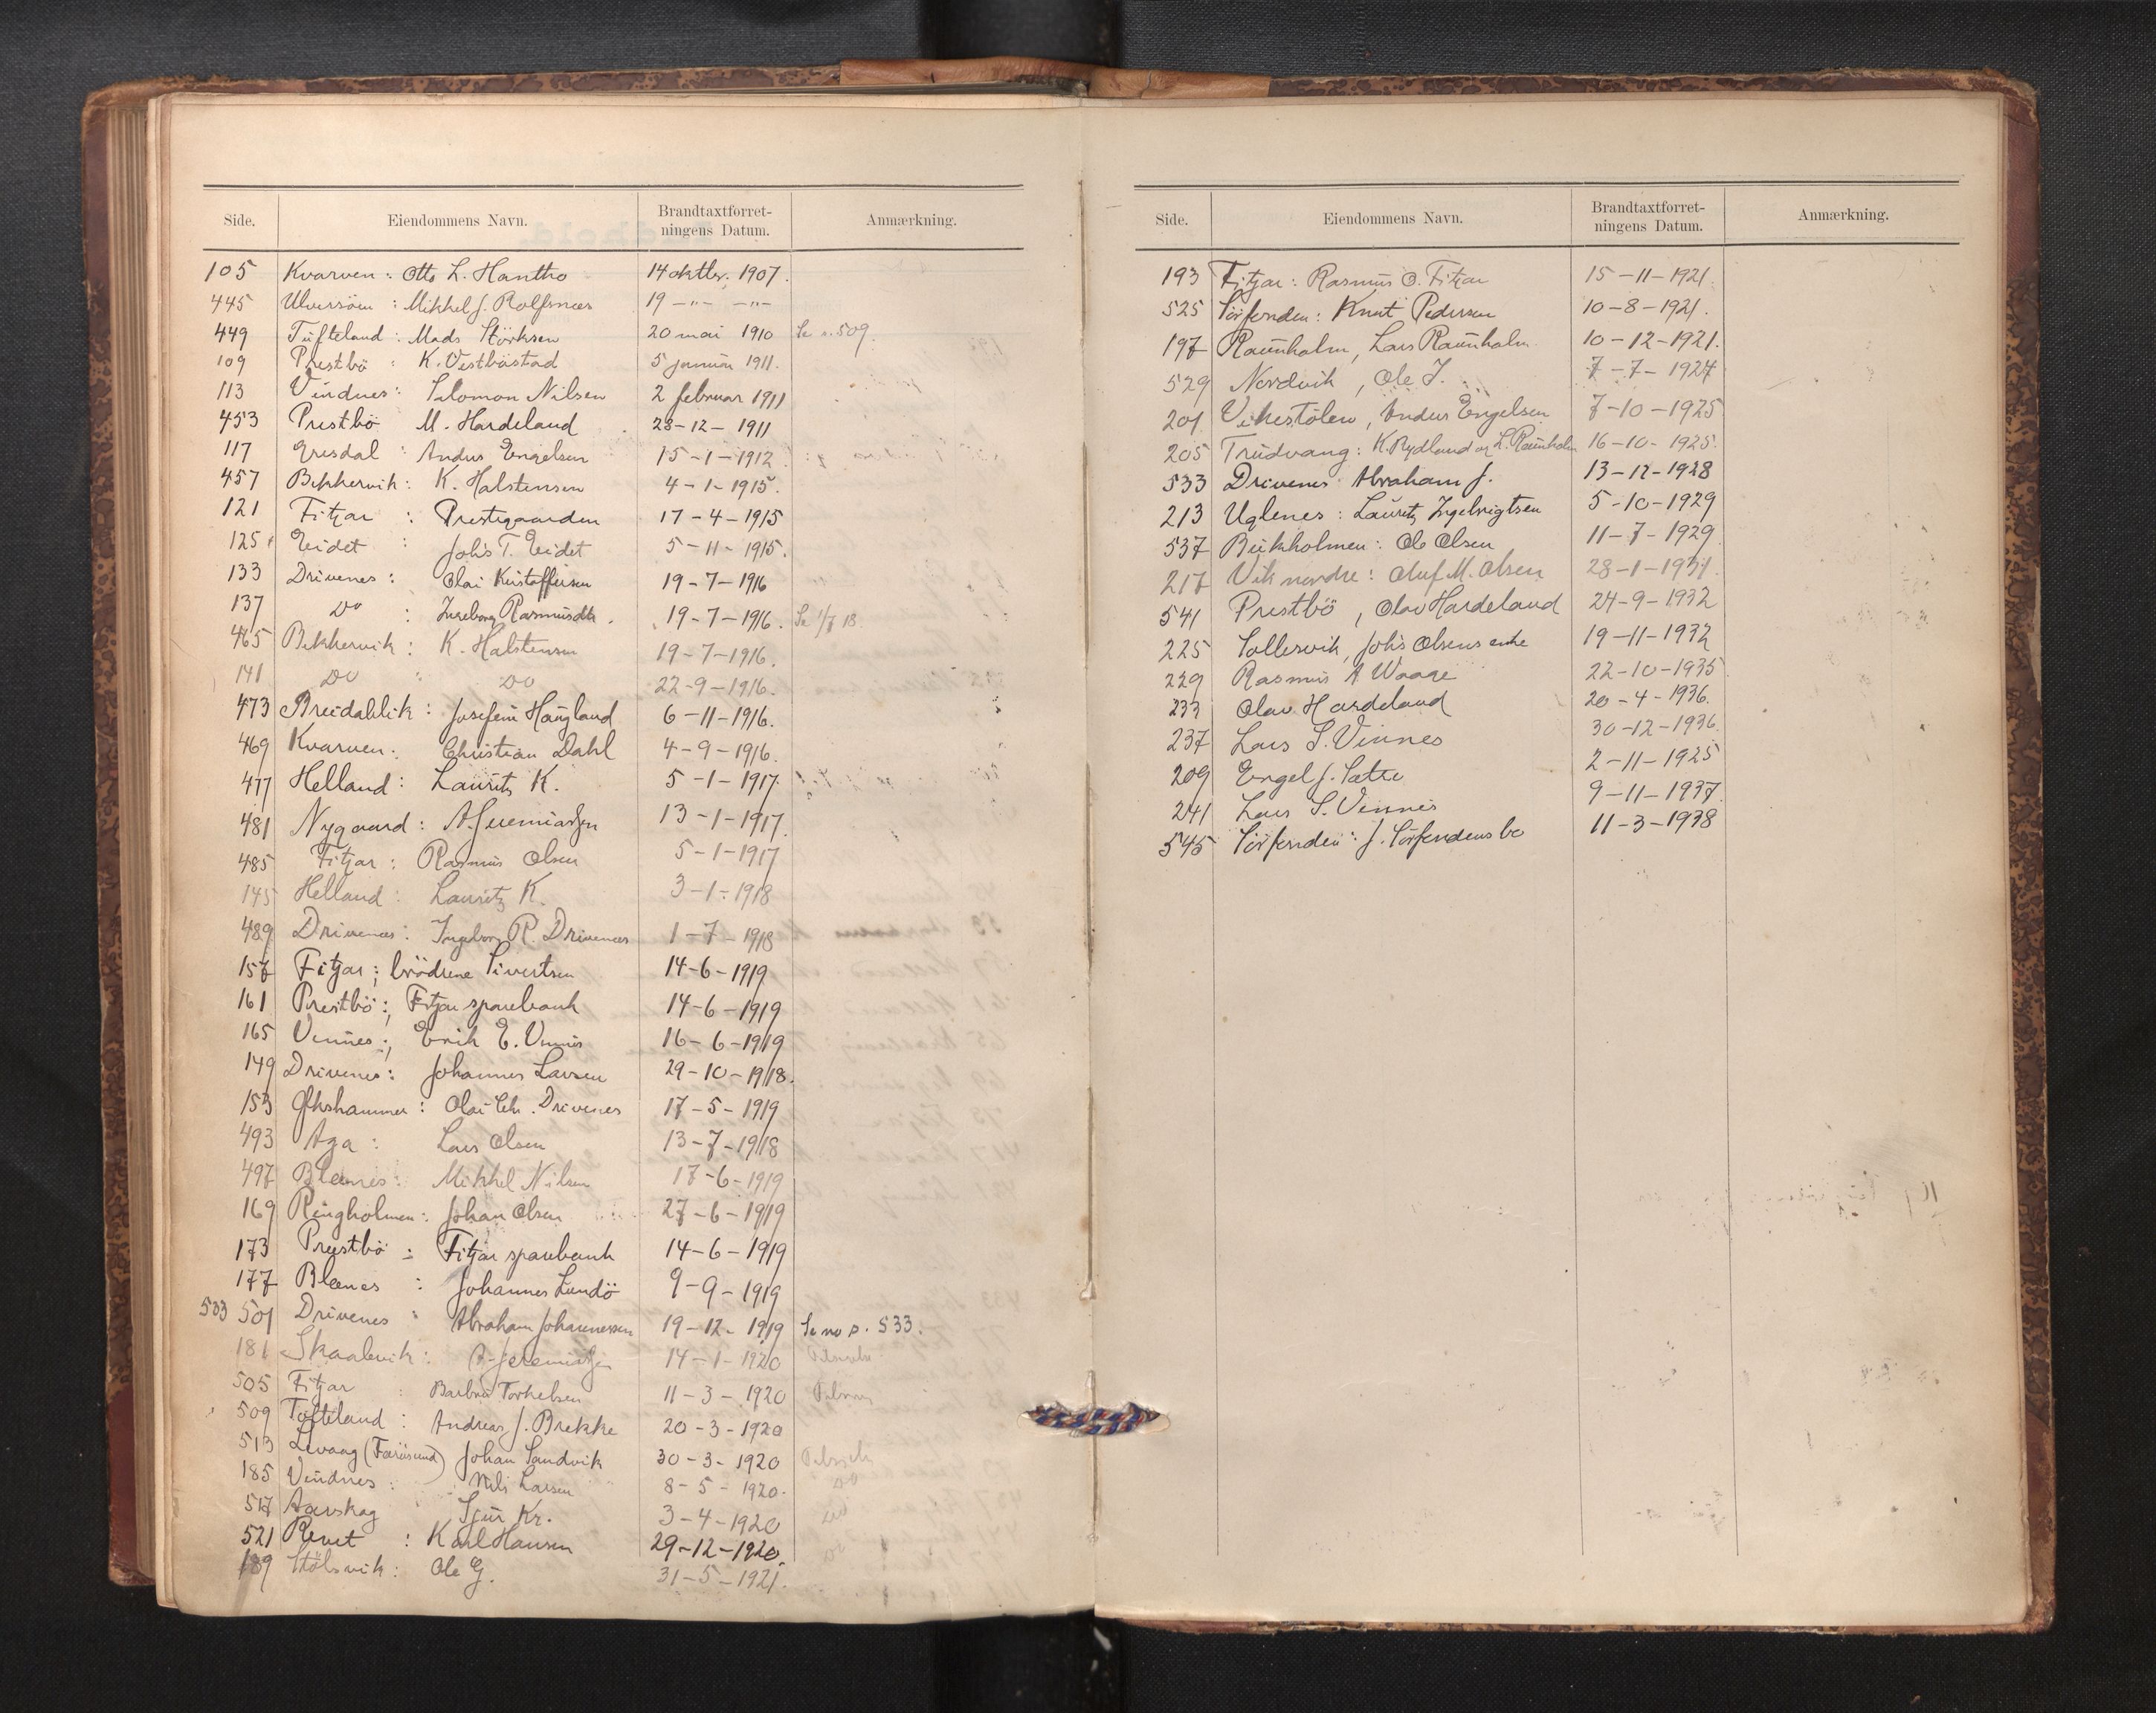 Side. Eiendommens Navn. Brandtaxtforret-ningens Datum. Anmærkning.
105 Kvarven: Otto L. Hantho 14 oktbr. 1907.
445 : Mikhel J. Rolfsnæs 19 -"- -"-
449 Tufteland: Mads Störksen 20 mai 1910 Se s. 509.
109 Prestbö : K. Vestböstad 5 januar 1911.
113 Vindnes: Salomon Nilsen 2 februar 1911
453 Prestbö M. Hardeland 28-12-1911
117 : Anders Engelsen 15-1-1912
457 Bekkervik: K. Halstensen 4-1-1915.
121 Fitjar : Prestegaarden 17-4-1915
125 Eidet : Johs T. Eidet 5-11-1915.
133 Drivenes: Olai Kristoffersen 19-7-1916
137 Do : Ingeborg Rasmusdtr. 19-7-1916. Se 1/7 18.
465 Bekkervik: K. Halstensen 19-7-1916.
141 Do : Do 22-9-1916.
473 Breidablik: Josefine Haugland 6-11-1916.
469 Kvarven: Christian Dahl 4-9-1916.
477 Helland: Lauritz K. 5-1-1917.
481 Nygaard: A. Jeremiassen 13-1-1917.
485 Fitjar: Rasmus Olsen 5-1-1917
145 Helland: Lauritz K. 3-1-1918
489 Drivenes: Ingeborg R. Drivenes 1-7-1918
157 Fitjar; brödrene Sivertsen 14-6-1919
161 Prestbö:, Fitjar sparebank 14-6-1919
165 Vinnes:, Erik E. Vinnes 16-6-1919
149 Drivenes: Johannes Larsen 29-10-1918.
153 : Olai Chr. Drivenes 17-5-1919
493 Aga: Lars Olsen 13-7-1918
497 Blænes: Mikkel Nilsen 17-6-1919
169 Ringholmen: Johan Olsen 27-6-1919
173 Prestbö : Fitjar sparebank 14-6-1919
177 Blænes : Johannes Lundö 9-9-1919
533 501 Drivenes : Abraham Johannessen 19-12-1919 Se no p. 533.
181 Skaalevik: A. Jeremiassen 14-1-1920
505 Fitjar : Barbra Torkelsen 11-3-1920
509 Töfteland: Andreas J. Brekke 20-3-1920
513 Levaag (Færösund) Johan Sandvik 30-3-1920
185 Vindnes: Nils Larsen 8-5-1920. do
517 Aarskog Sjur Kr. 3-4-1920 do
521 Revet : Karl Hansen 29-12-1920. do
189 Stölsvik: Ole G. 31-5-1921.
Side. Eiendommens Navn. Brandtaxtforret-ningens Datum. Anmærkning.
193 Fitjar: Rasmus O. Fitjar 15-11-1921.
525 Sörfonden: Knut Pedersen 10-8-1921.
197 Raunholm, Lars Raunholm 10-12-1921.
529 Nordvik, Ole J. 7-7-1924
201 Vikestölen, Anders Engelsen 7-10-1925
205 Trudvang: K. Rydland og L. Raunholm 16-10-1925.
533 Drivenes Abraham J. 13-12-1928
213 Uglenes: Lauritz Ingebrigtsen 5-10-1929
537 Buikholmen: Ole Olsen 11-7-1929
217 Vik nordre: Oluf M. Olsen 28-1-1931.
541 Prestbö, Olav Hardeland 24-9-1932
225 Sollesvik, Johs Olsens enke 19-11-1932
229 Rasmus A Waage 22-10-1935
233 Olav Hardeland 20-4-1936.
237 Lars S. Vinnes 30-12-1936.
209 Engel J. Sætre 2-11-1925
241 Lars S. Vinnes 9-11-1937
545 Sörfonden: J. Sörfondens bo 11-3-1938